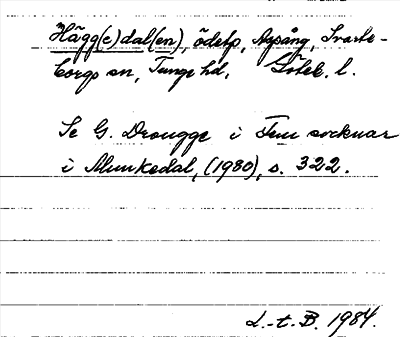 Hägg(e)dal(en), ödetp, Aspång, Svarte-
borgs sn, Tunge hd, Göteb. l.
Se G. Drougge i Fem socknar
i Munkedal, (1980), s. 322.
L.-t. B. 1984.